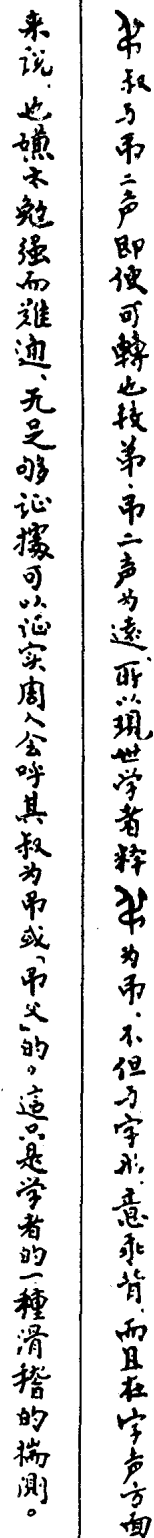 叔与吊二声即使可轉也較弟、吊二声为遠，所以現世学者释为吊，不但与字形、意乖背，而且在字声方面
来说，也嫌太勉强而难通，无足够证據可以证实周人会呼其叔为吊或「吊父」的，這只是学者的一種滑稽的揣測。